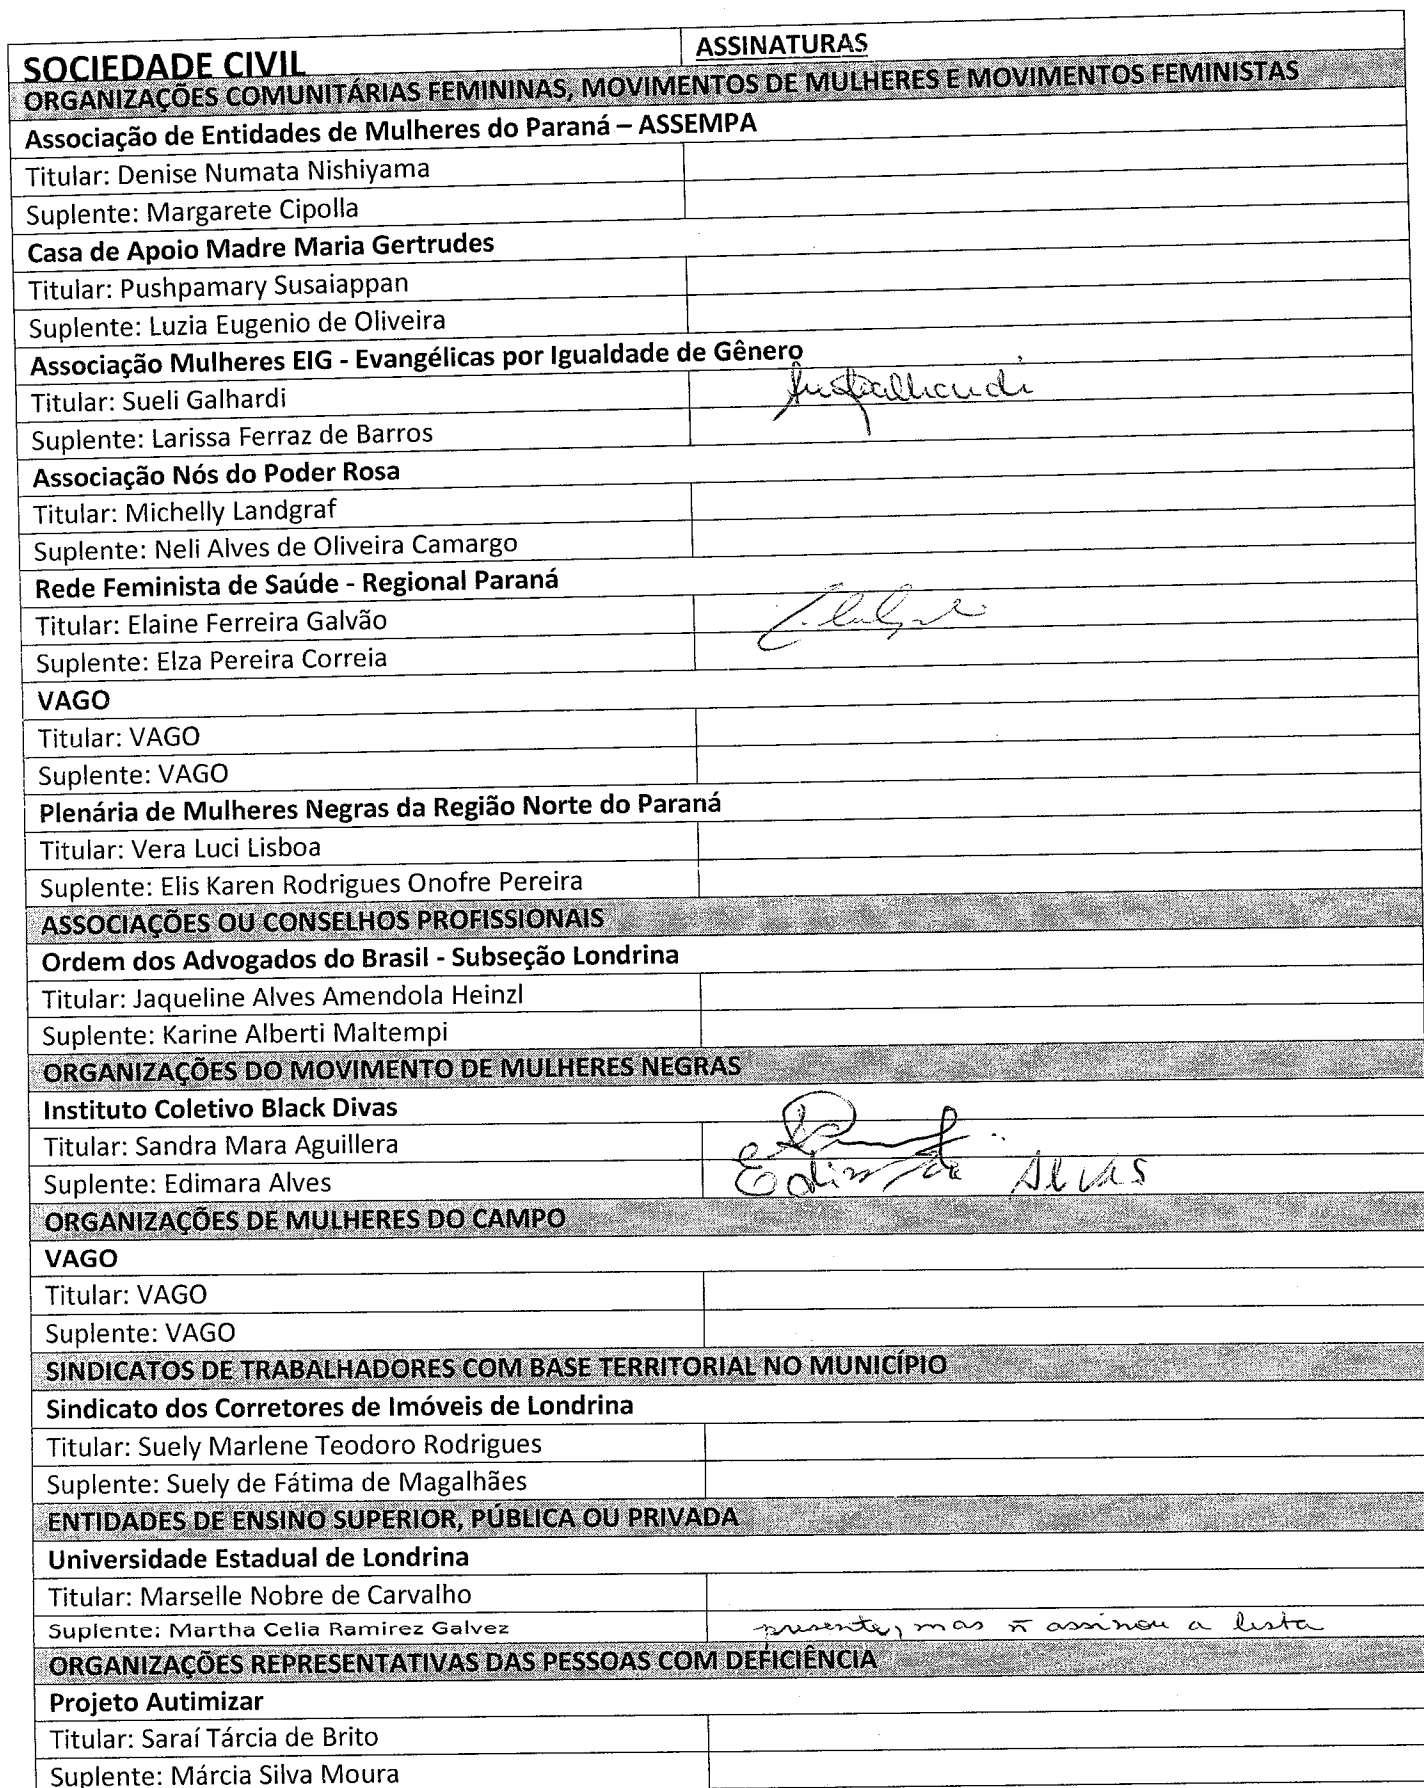 SOCIEDADE CIVIL
ASSINATURAS
ORGANIZAÇÕES COMUNITÁRIAS FEMININAS, MOVIMENTOS DE MULHERES E MOVIMENTOS FEMINISTAS
Associação de Entidades de Mulheres do Paraná – ASSEMPA
Titular: Denise Numata Nishiyama
Suplente: Margarete Cipolla
Casa de Apoio Madre Maria Gertrudes
Titular: Pushpamary Susaiappan
Suplente: Luzia Eugenio de Oliveira
Associação Mulheres EIG - Evangélicas por Igualdade de Gênero
Titular: Sueli Galhardi
Suplente: Larissa Ferraz de Barros
Associação Nós do Poder Rosa
Titular: Michelly Landgraf
Suplente: Neli Alves de Oliveira Camargo
Rede Feminista de Saúde - Regional Paraná
Titular: Elaine Ferreira Galvão
Suplente: Elza Pereira Correia
VAGO
Titular: VAGO
Suplente: VAGO
Plenária de Mulheres Negras da Região Norte do Paraná
Titular: Vera Luci Lisboa
Suplente: Elis Karen Rodrigues Onofre Pereira
ASSOCIAÇÕES OU CONSELHOS PROFISSIONAIS
Ordem dos Advogados do Brasil - Subseção Londrina
Titular: Jaqueline Alves Amendola Heinzl
Suplente: Karine Alberti Maltempi
ORGANIZAÇÕES DO MOVIMENTO DE MULHERES NEGRAS
Instituto Coletivo Black Divas
Titular: Sandra Mara Aguillera
Suplente: Edimara Alves Alvas
ORGANIZAÇÕES DE MULHERES DO CAMPO
VAGO
Titular: VAGO
Suplente: VAGO
SINDICATOS DE TRABALHADORES COM BASE TERRITORIAL NO MUNICÍPIO
Sindicato dos Corretores de Imóveis de Londrina
Titular: Suely Marlene Teodoro Rodrigues
Suplente: Suely de Fátima de Magalhães
ENTIDADES DE ENSINO SUPERIOR, PÚBLICA OU PRIVADA
Universidade Estadual de Londrina
Titular: Marselle Nobre de Carvalho
Suplente: Martha Celia Ramirez Galvez presente, mas ñ assinou a lista
ORGANIZAÇÕES REPRESENTATIVAS DAS PESSOAS COM DEFICIÊNCIA
Projeto Autimizar
Titular: Saraí Tárcia de Brito
Suplente: Márcia Silva Moura